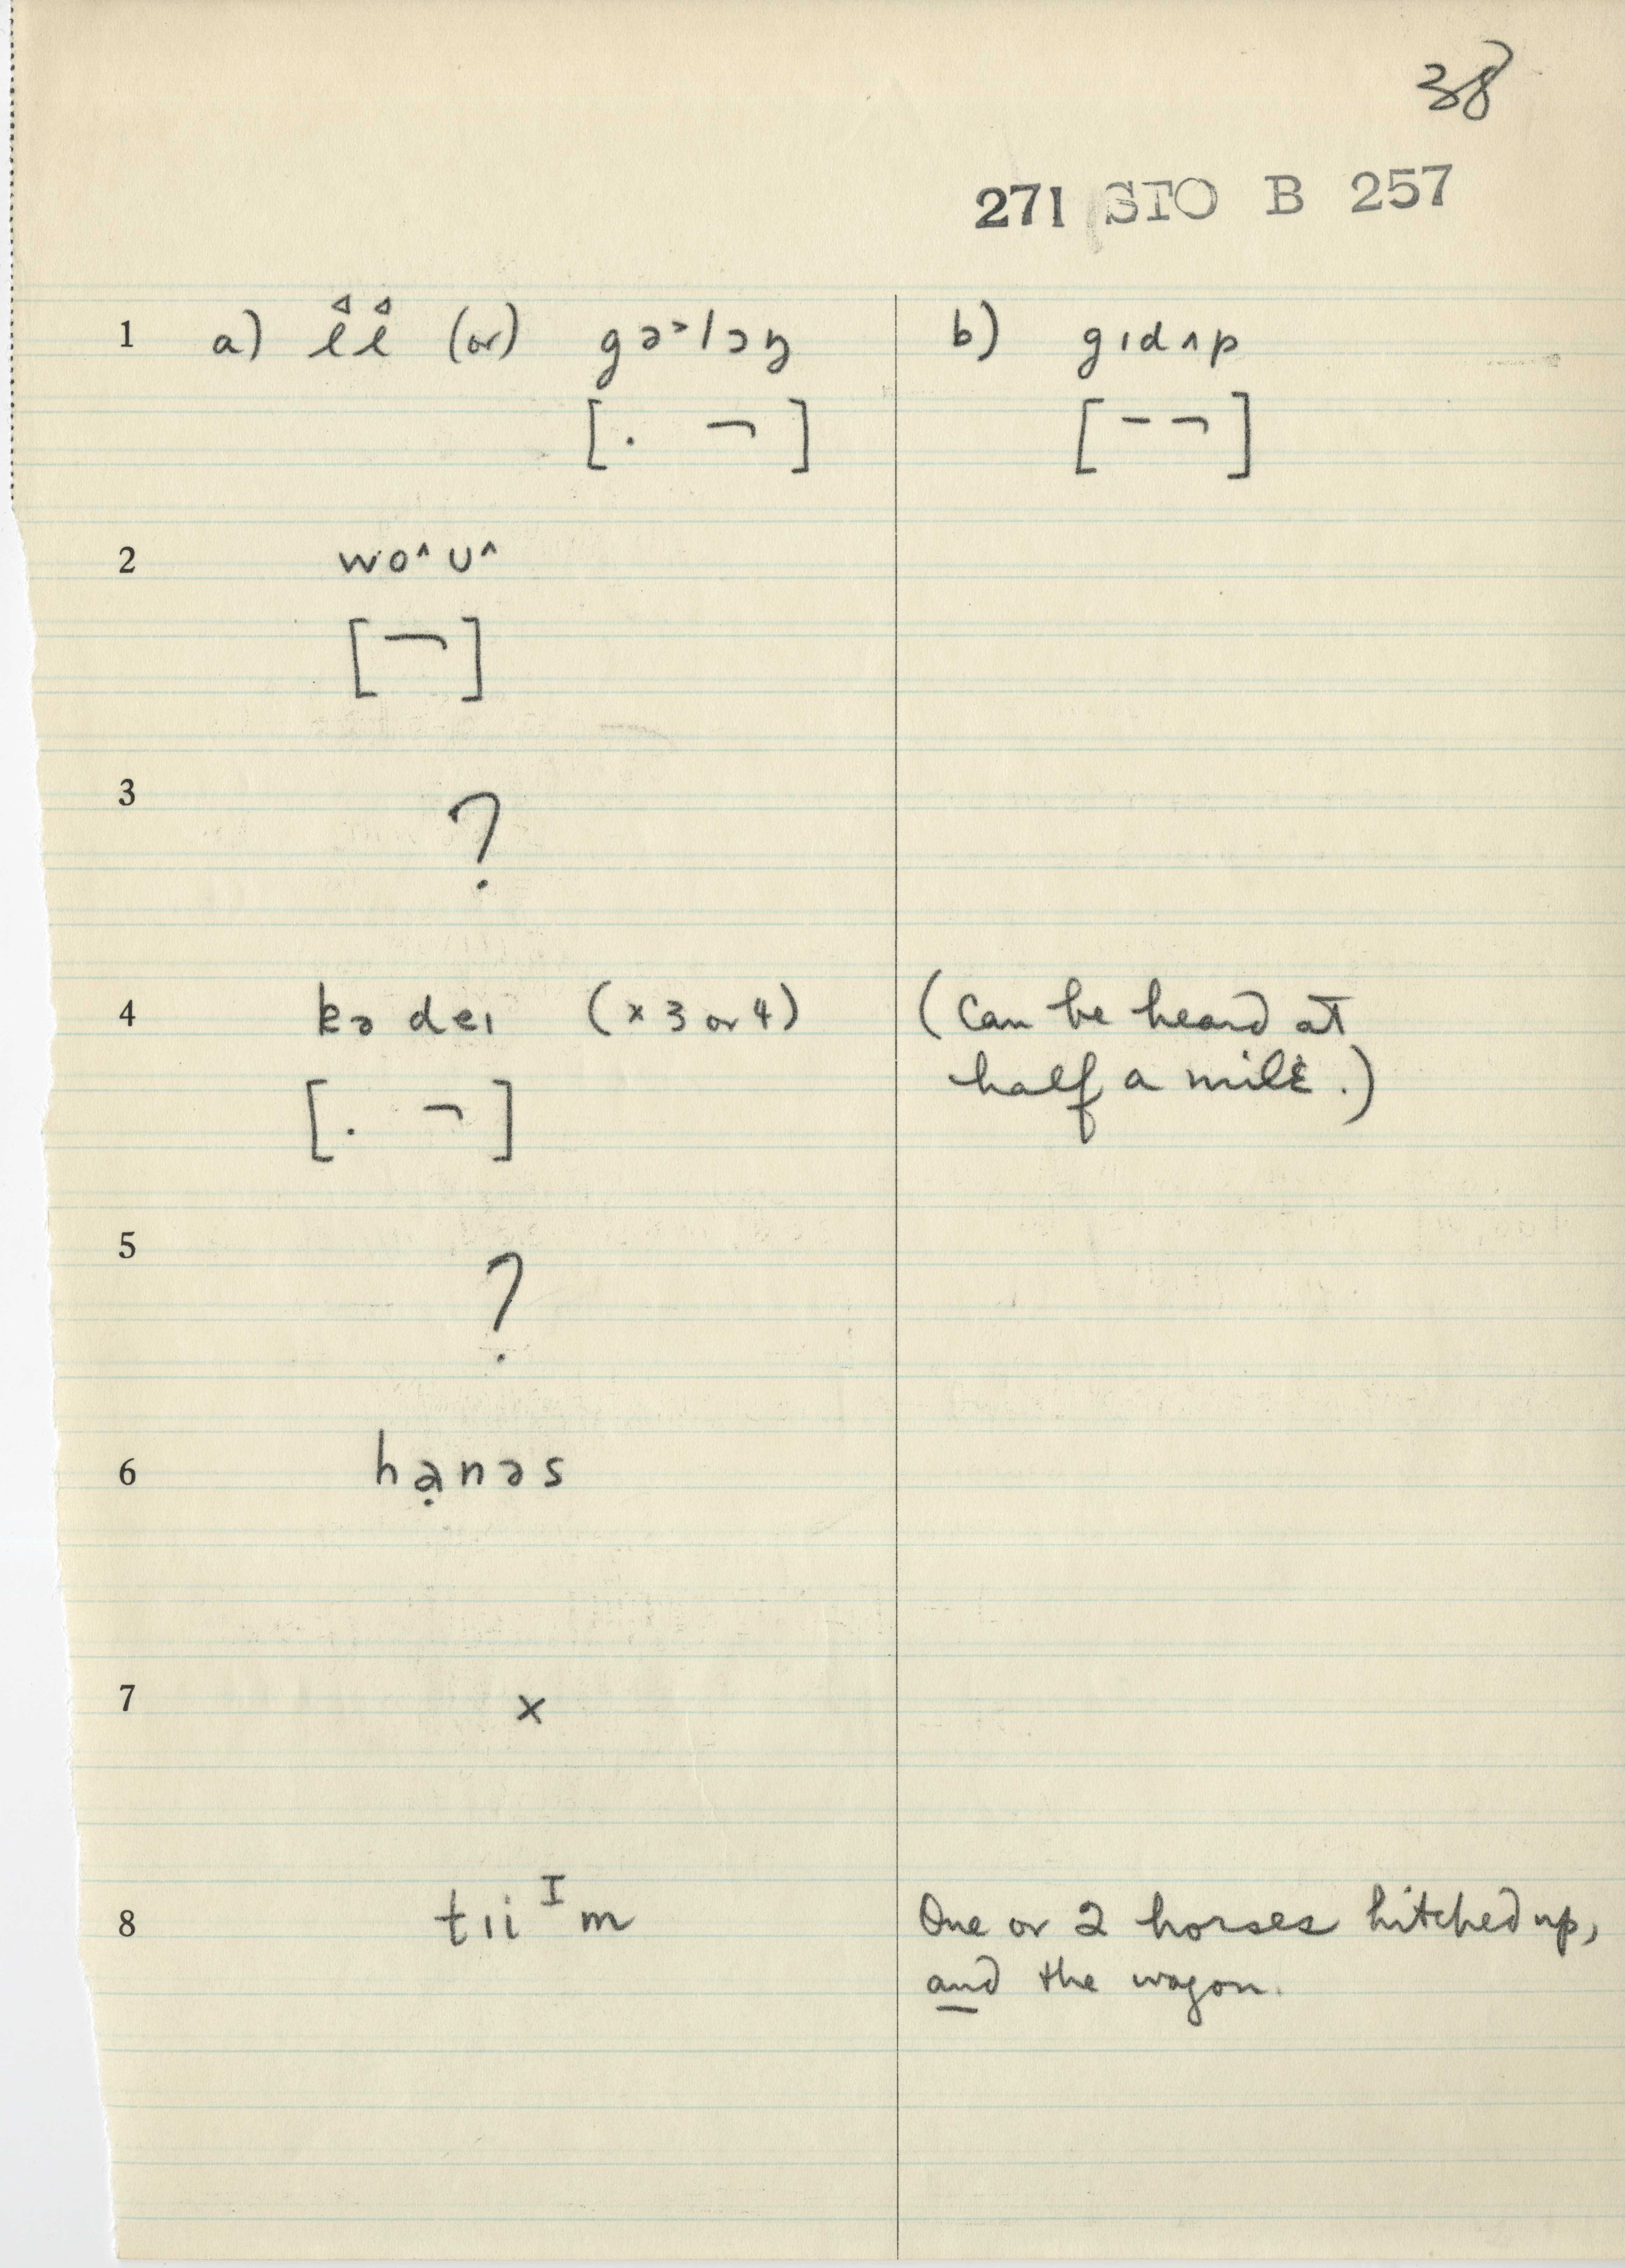 38
271 STO B 257
1 a) l̂l̂ (or) gə˃lɔŋ b) gıdʌp
[. ¬] [– ¬]
2 wo^ʊ^
[¬]
3 ?
4 kə deı (×3 or 4) (Can be heard at
[. ¬] half a mile.)
5 ?
6 hạnəs
7 ×
8 tıiᴵm One or 2 horses hitched up,
and the wagon.